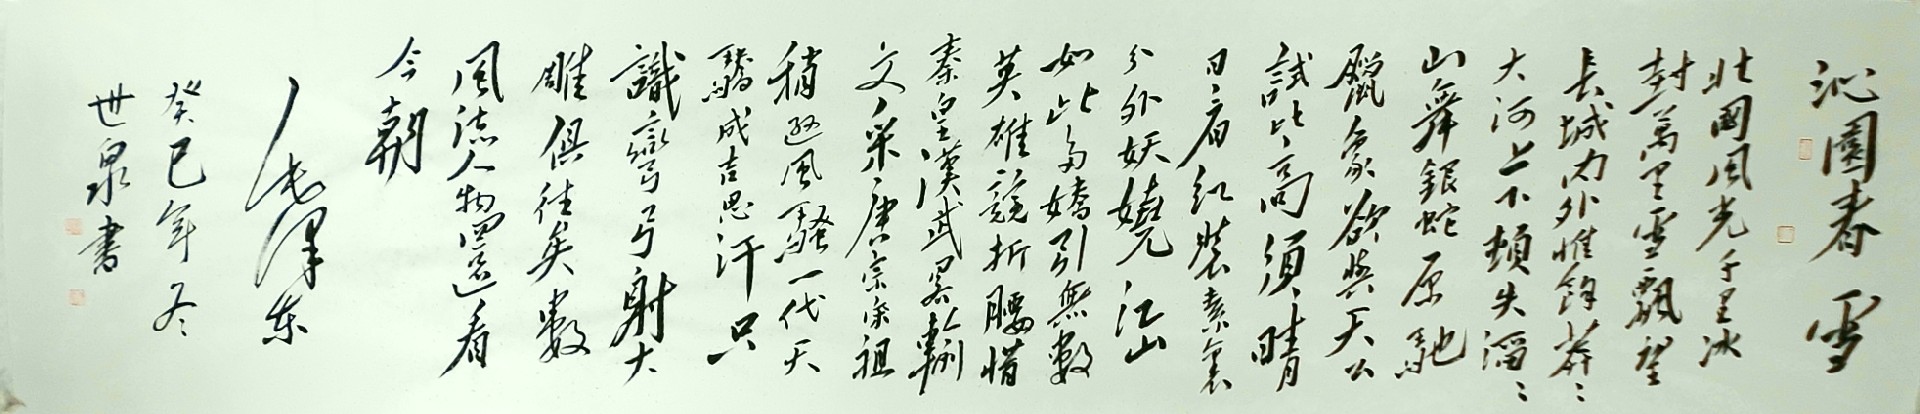 沁園春 雪
北國風光千里冰
封萬里雪飄望
長城內外惟餘莽〻
大河上下頓失滔〻
山舞銀蛇原馳
臘象欲與天公
試比高須晴
日看紅裝素裹
分外妖嬈江山
如此多嬌引無數
英雄競折腰惜
秦皇漢武略輸
文采唐宗宋祖
稍遜風騷一代天
驕成吉思汗只
識彎弓射大
雕俱往矣數
風流人物還看
今朝
毛澤東
癸巳年冬
世泉書